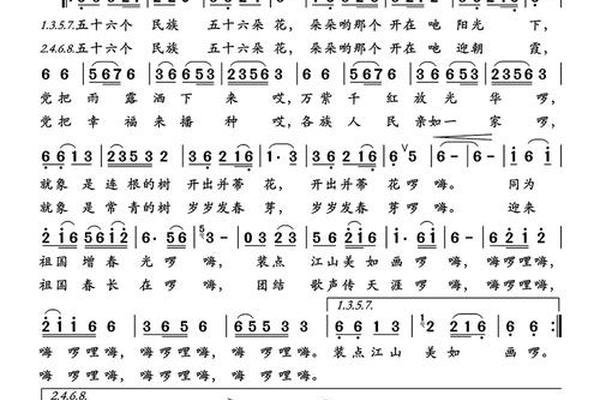 1.3.5.7.五十六个 民族 五十六朵 花，朵朵哟那个 开在 吔 阳光 下，
2.4.6.8.五十六个 民族 五十六朵 花，朵朵哟那个 开在 吔 迎朝 霞，
6 6 | 5676 | 36653 | 23563 | 6 5 3 5 | 6 2 1 2 | 3 36653 | 2353 |
党把 雨露 洒下 来 哎，万紫千 红放光 华 啰，
党把 幸福 来播 种 哎，各族人 民亲如一 家 啰，
6 6 1 3 | 23532 | 36216 | 1·3 | 36216 | 6 5 | 6- | 6- | 1 61 |
就象 是 连根的树 开出并蒂 花， 开出并蒂 花啰 嗨。 同为
就象 是 常青的树 岁岁发春 芽， 岁岁发春 芽啰 嗨。 迎来
2 16 | 5612 | 6·56 | 53- | 0323 | 3 5 | 616 | 1·6 | 6- | 6212 |
祖国 增春 光啰 嗨， 装点 江山美如 画啰 嗨， 嗨啰哩嗨，
祖国 春长 在啰 嗨， 团结 歌声传天 涯啰 嗨， 嗨啰哩嗨，
1.3.5.7.
2 1 1 6 6 | 3656 | 61653 | 65533 | 6 6 1 3 | 2 216 | 6 6 :‖
嗨 啰哩嗨， 嗨啰哩嗨， 嗨啰哩嗨， 嗨啰哩嗨。 装点江山 美如 画啰。
嗨 啰哩嗨， 嗨啰哩嗨， 嗨啰哩嗨， 嗨啰哩嗨。
2.4.6.8.